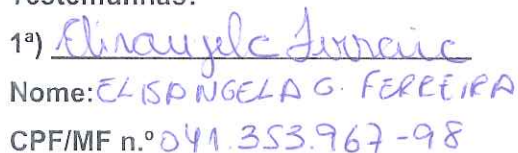 Testemunhas:
1ª) Elisangela Ferreira
Nome: ELISANGELA G. FERREIRA
CPF/MF n.º 041.353.967-98